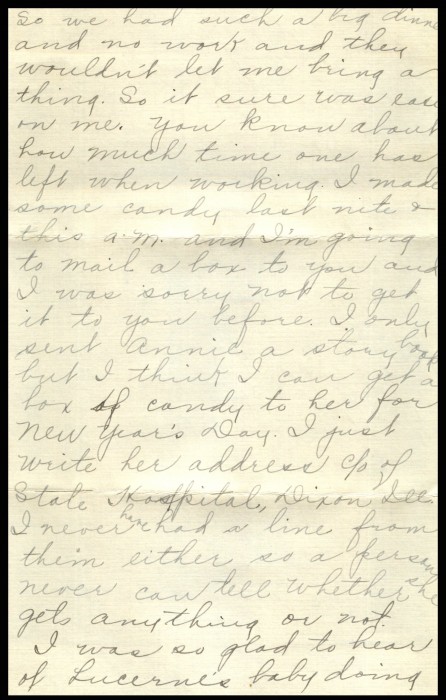 So we had such a big dinne
and no work and they
wouldn't let me bring a
thing. So it sure was ease
on me. You know about
how much time one has
left when working. I made
some candy last nite &
this a.m. and I'm going
to mail a box to you and
I was sorry not to get
it to you before. I only
sent Annie a story book
but I think I can get a
box of candy to her for
New Year's Day. I just
write her address c/o of
State Hospital, Dixon Ill.
I never had a line from
them either so a person
never can tell whether she
gets anything or not.
I was so glad to hear
of Lucerne's baby doing